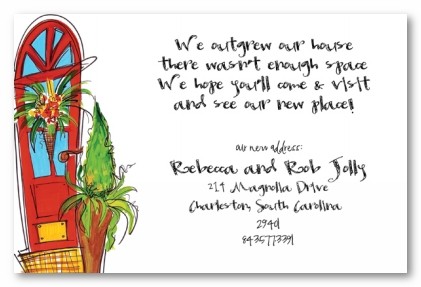 We outgrew our house
there wasn't enough space
We hope you'll come & visit
and see our new place!
our new address:
Rebecca and Rob Jolly
214 Magnolia Drive
Charleston, South Carolina
29401